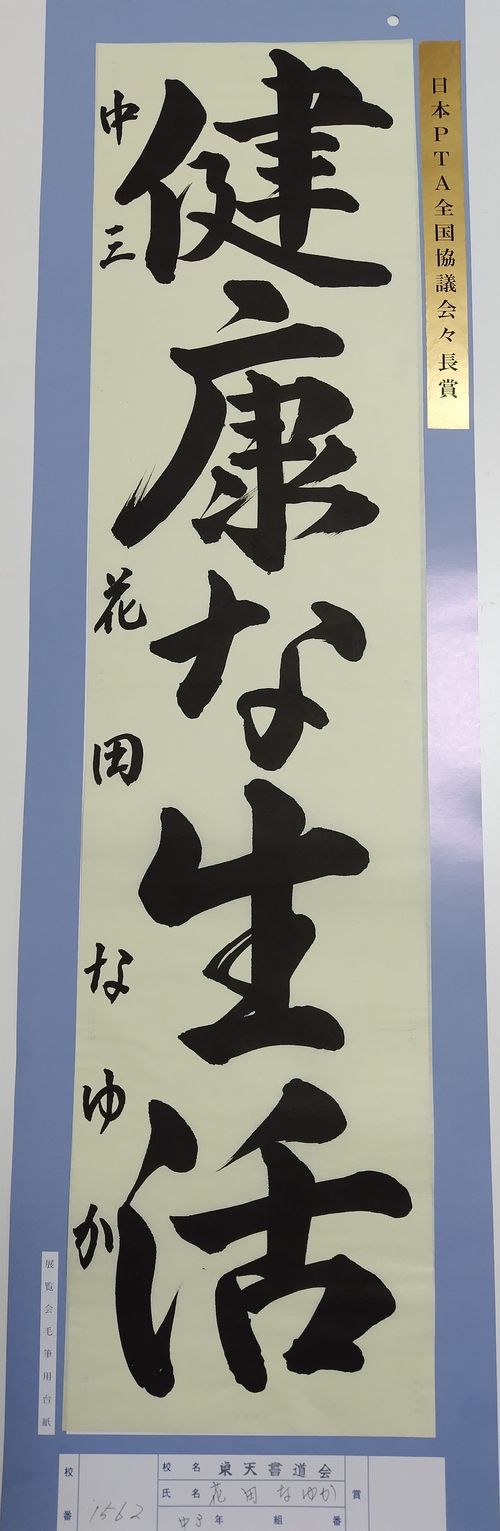 日本PTA全国協議会々長賞
健康な生活
中三 花田なゆか
展覧会毛筆用台紙
校番 1562
校名 東天書道会
氏名 花田なゆか
中3年 組 番
賞